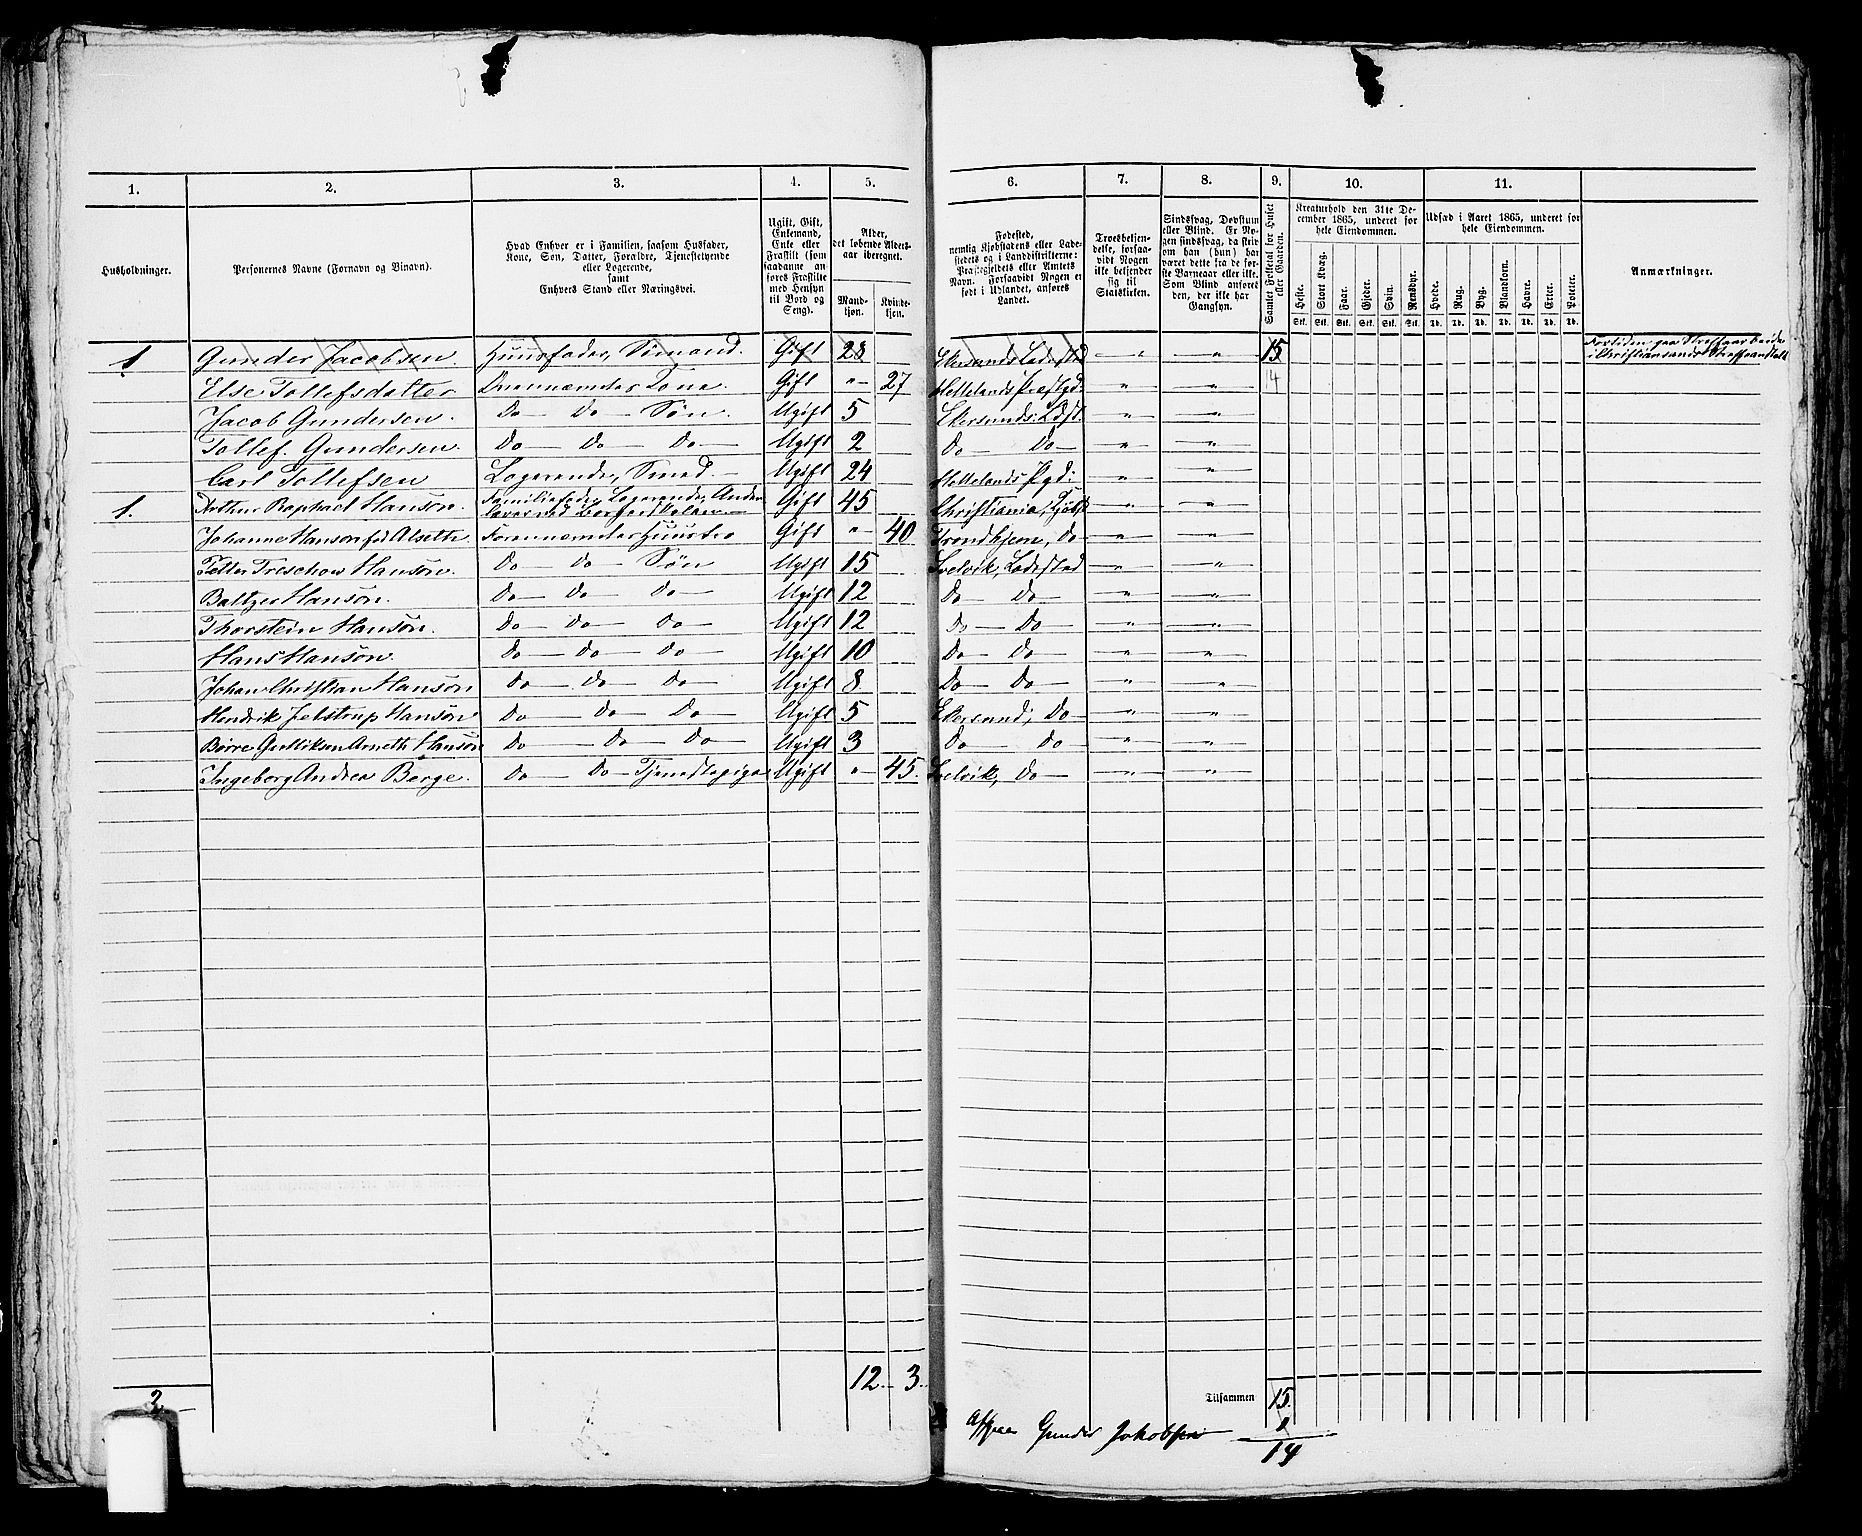 1. 2. 3. 4. 5. 6. 7. 8. 9. 10. 11.
Husholdninger.
Personernes Navne (Fornavn og Binavn).
Hvad Enhver er i Familien, saasom Husfader,
Kone, Søn, Datter, Forældre, Tjenestetyende
eller Logerende,
samt
Enhvers Stand eller Næringsvei.
Ugift, Gift,
Enkemand,
Enke eller
Fraskilt (som
saadanne an-
føres Fraskilte
med Hensyn
til Bord og
Seng).
Alder,
det løbende Alders-
aar iberegnet.
Mand-
kjøn.
Kvinde-
kjøn.
Fødested,
nemlig Kjøbstadens eller Lade-
stedets og i Landdistrikterne:
Præstegjeldets eller Amtets
Navn. Forsaavidt Nogen er
født i Udlandet, anføres
Landet.
Troesbekjen-
delse, forsaa-
vidt Nogen
ikke bekjender
sig til
Statskirken.
Sindssvag, Døvstum
eller Blind. Er No-
gen sindssvag, da skri-
ves om han (hun) har
været dette fra de før-
ste Barneaar eller ikke.
Som Blind anføres
den, der ikke har
Gangsyn.
Samlet Folketal for Huset
eller Gaarden.
Kreaturhold den 31te De-
cember 1865, underet for
hele Eiendommen.
Heste. Stort Kvæg. Faar. Gjeder. Svin. Rensdyr.
Stk. Stk. Stk. Stk. Stk. Stk.
Udsæd i Aaret 1865, underet for
hele Eiendommen.
Hvede. Rug. Byg. Blandkorn. Havre. Erter. Poteter.
Td. Td. Td. Td. Td. Td. Td.
Anmærkninger.
1 Gunder Jacobsen. Huusfader, Sömand. Gift 28 Ekersunds Ladested — " — — " — 15 Fortiden paa Strafarbeide
i Christiansands Strafanstalt
Else Tollefsdatter Gift " 27 Hellelands Præstgd: " " 14
Jacob Gundersen. Do — Do — Søn. Ugift 5 Ekersunds Ldst. " "
Tollef. Gundersen. Do — Do — Do — Ugift 2 Do Do — " "
Carl Tollefsen Logerende, Smed. — Ugift 24 Hellelands Pgd: " "
1. Arthur Raphael Hansøn. Familiefader, Logerende, Gift 45 Christiania, Kjøbst " "
Johanne Hansøn fød Alseth Forannævntes Huustro Gift " 40 Trondhjem, Do — " "
Petter Treschow Hansøn. Do — Do — Søn Ugift 15 Svelvik, Ladested " "
Baltzer Hansøn. Do — Do — Do — Ugift 12 Do — Do — " "
Thorstein Hansøn. Do — Do — Do — Ugift 12 Do — Do — " "
Hans Hansøn. Do — Do — Do — Ugift 10 Do — Do — " "
Johan Christian Hansøn Do — Do — Do — Ugift 8 Do — Do — " "
Henrik Jelstrup Hansøn Do — Do — Do — Ugift 5 Ekersund, Do — " "
Børre Gulliksen Arneth Hansøn Do — Do — Do — Ugift 3 Do — Do — " "
Ingeborg Andrea Børge. Do — Do — Tjenestepige Ugift " 45. Svelvik, Do — " "
12. 3.
2 Tilsammen 15.
Gunder Jakobsen 1
14